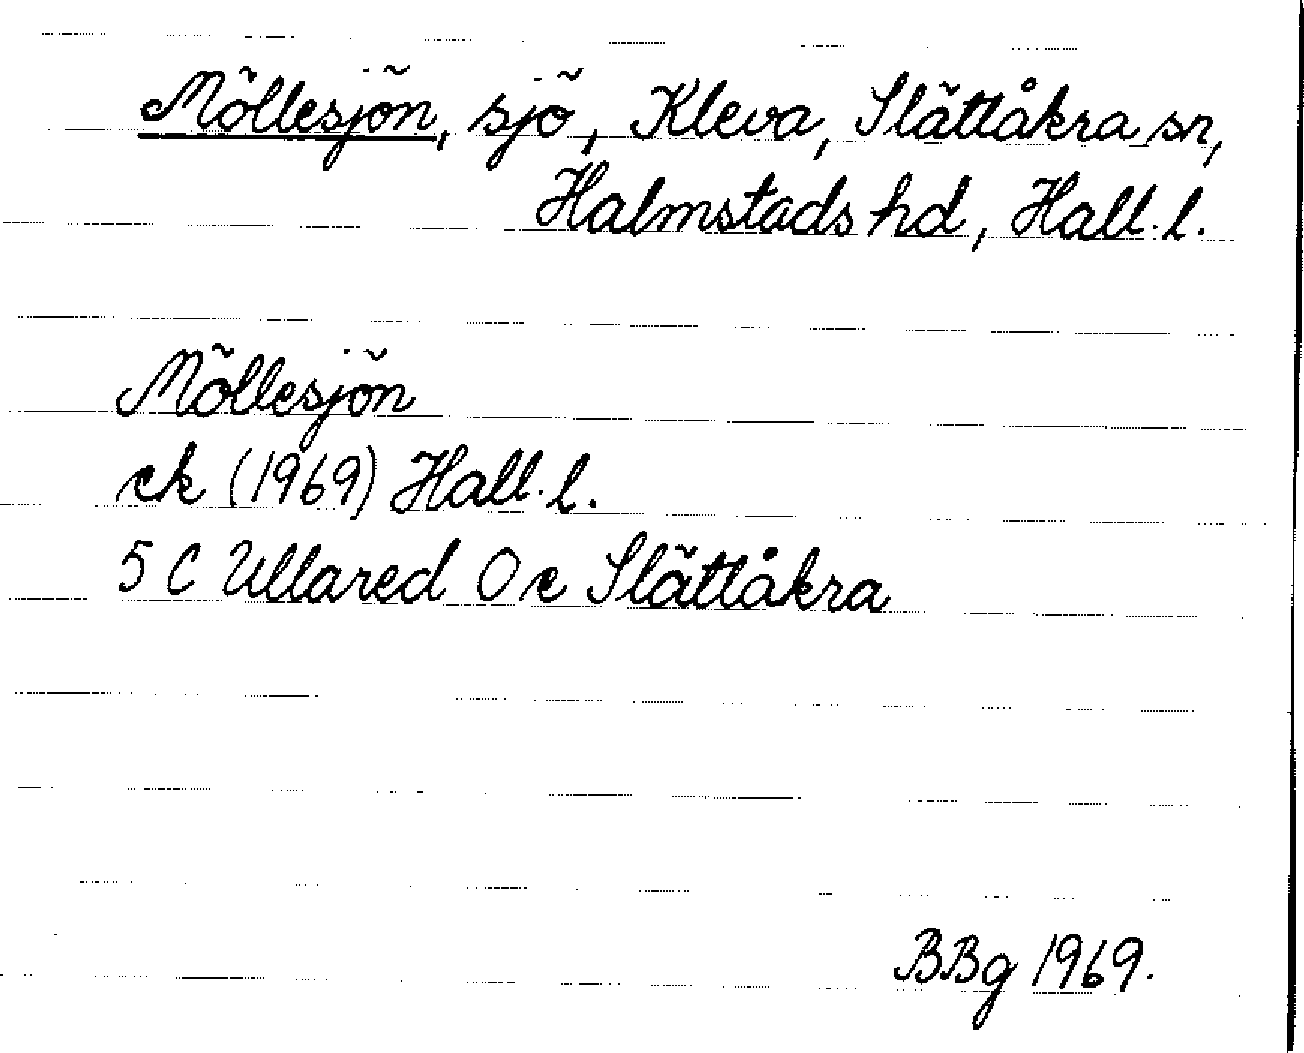 Möllesjön, sjö, Kleva, Slättåkra sn,
Halmstads hd, Hall. l.
Möllesjön
ek (1969) Hall. l.
5 C Ullared 0 e Slättåkra
BBg 1969.